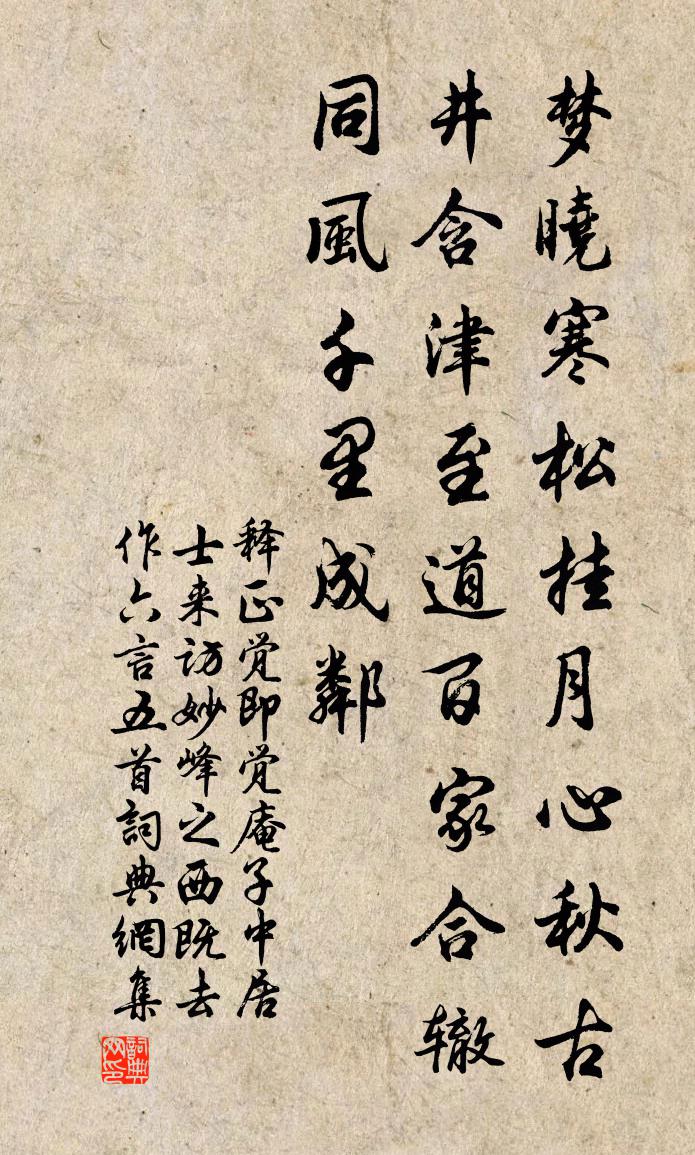 梦曉寒松挂月心秋古
井含津至道百家合辙
同風千里成鄰
释正觉即觉庵子中居
士来访妙峰之西既去
作六言五首詞典網集
詞典
网印